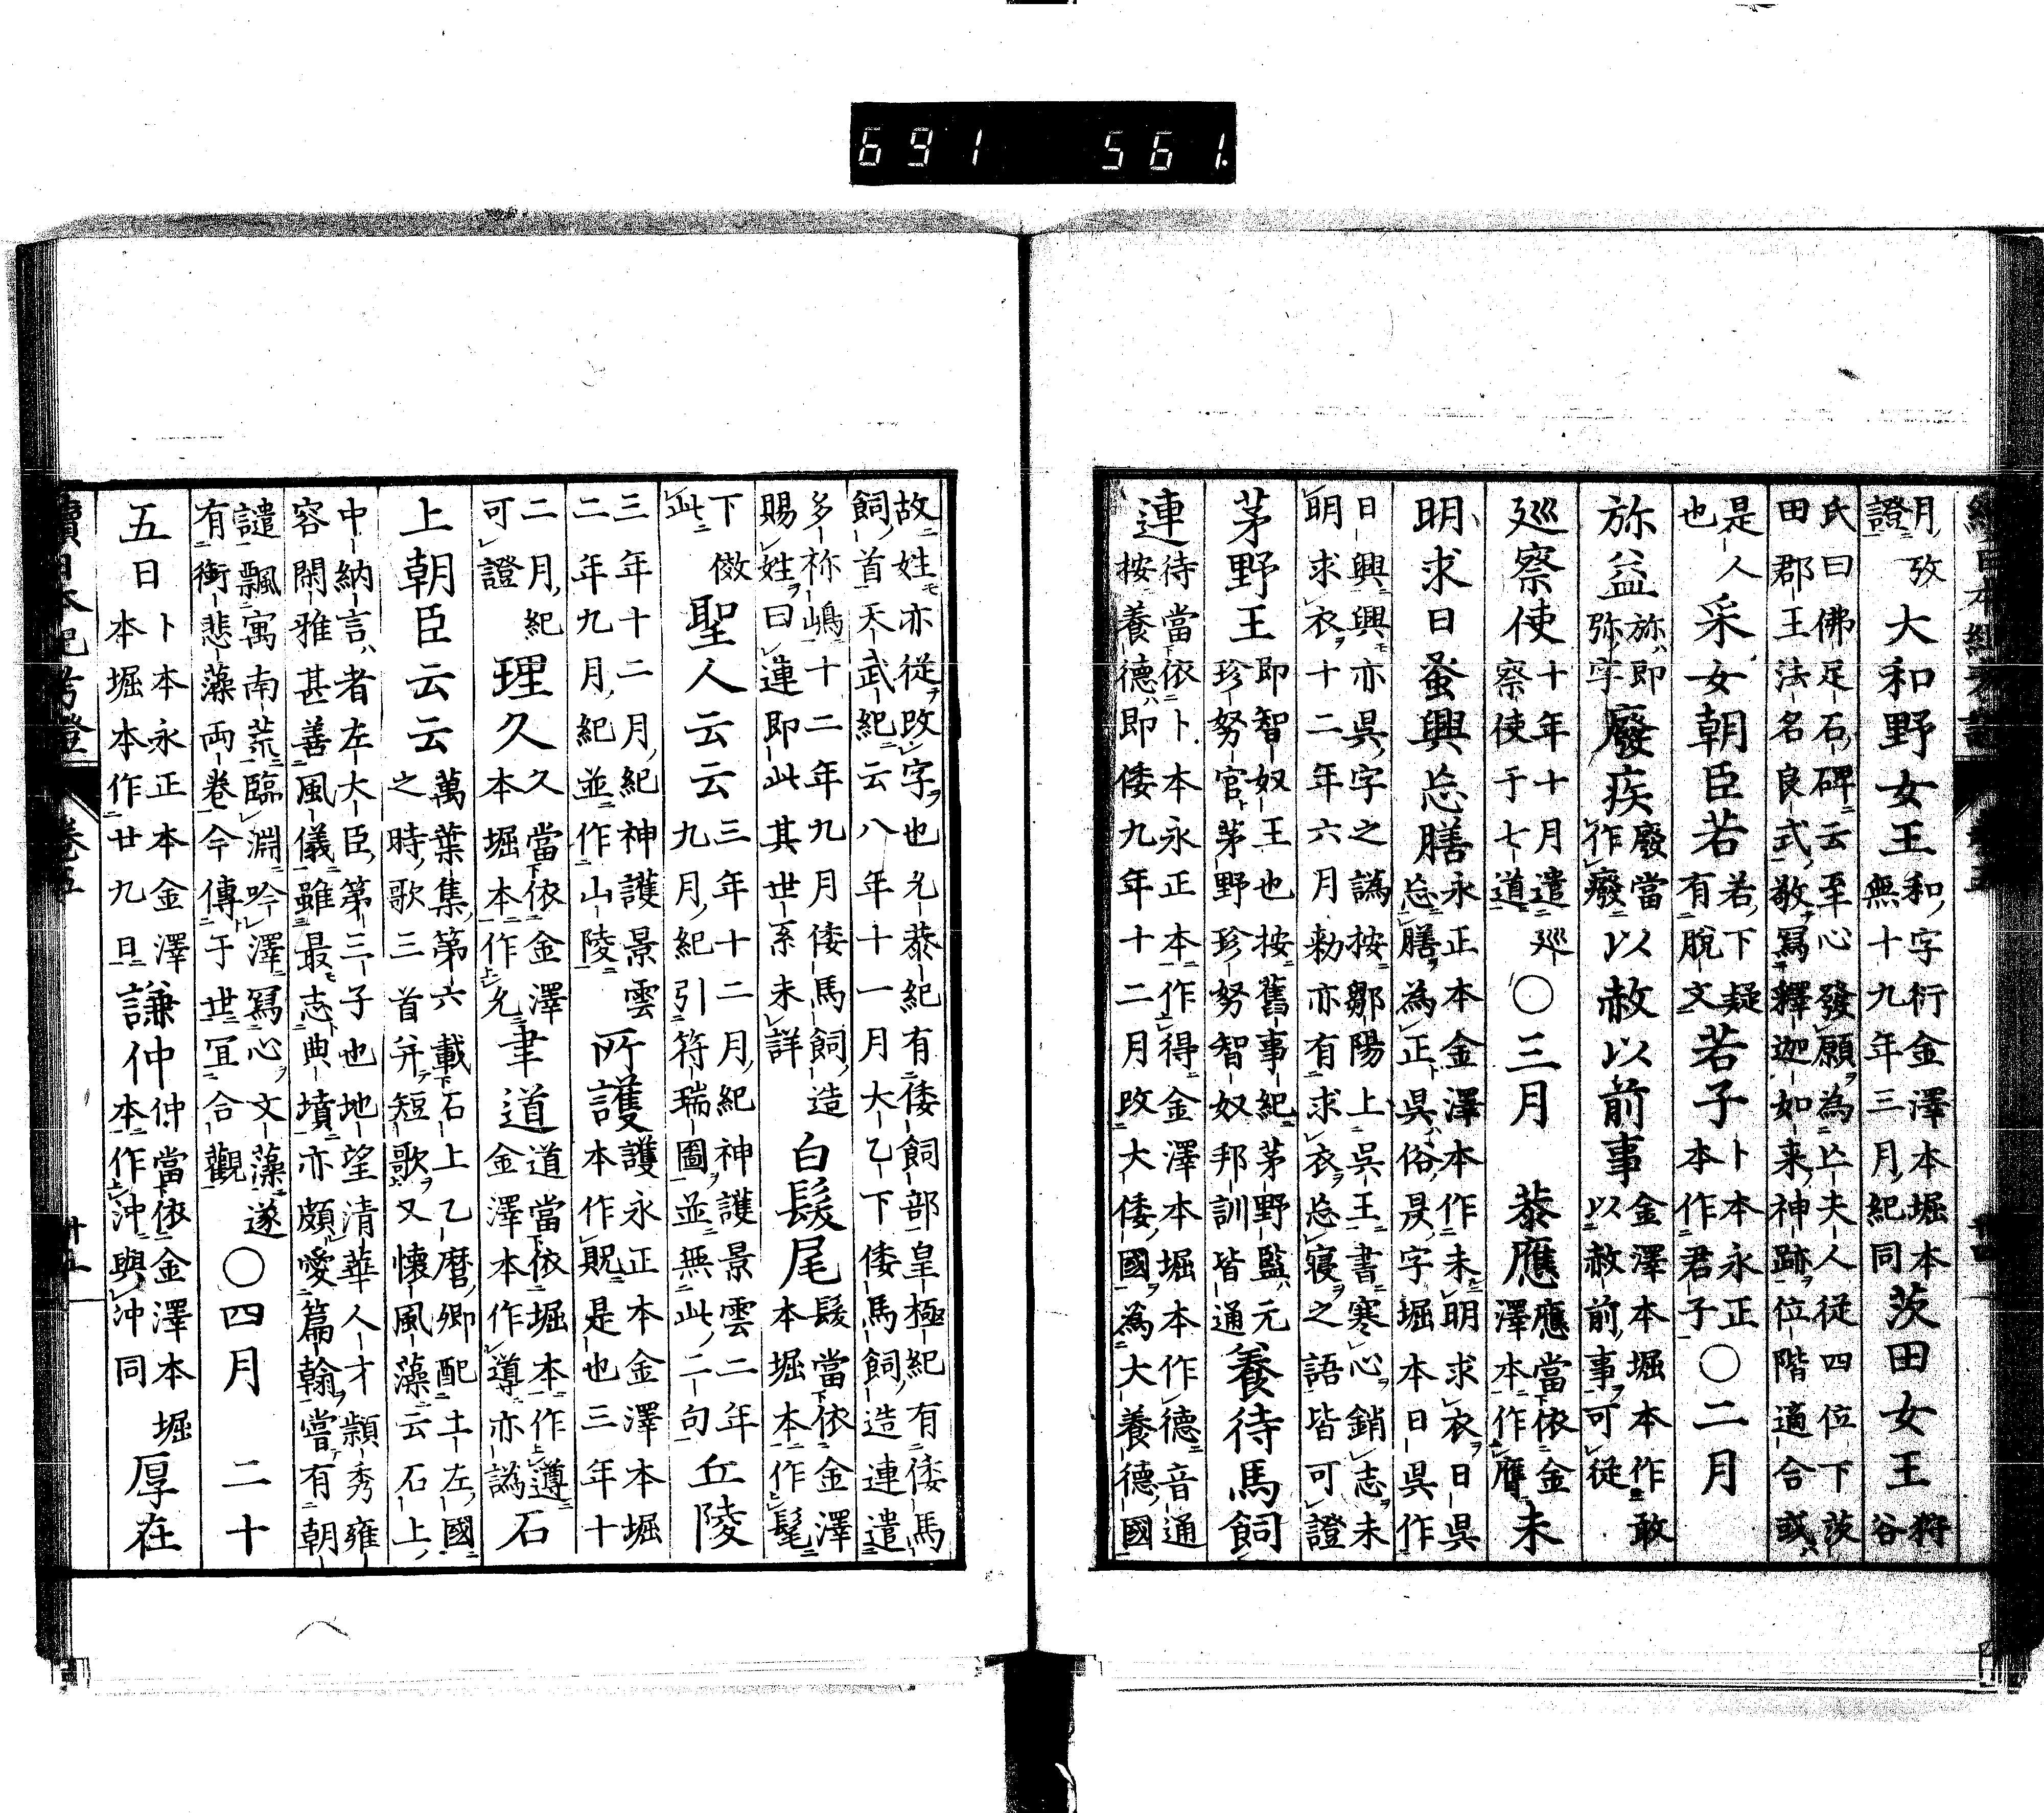 691 561
月攷證大和野女王和字衍金澤本堀本無十九年三月紀同茨田女王狩谷
氏曰佛足石碑云至心發願為亡夫人従四位下茨田郡王法名良式敬寫釋迦如来神跡位階適合或
是人也采女朝臣若若下疑有脫文若子卜本永正本作君子○二月
旀益旀即弥字廢疾廢當作癈以赦以前事金澤本堀本作敢以赦前事可従
巡察使十年十月遣巡察使于七道○三月 恭應應當依金澤本作膺未
明求日蚤興忘膳永正本金澤本作未明求衣日吳忘膳為正吳俗昃字堀本日吳作
日興興亦吳字之譌按鄒陽上吳王書寒心銷志未明求衣十二年六月勅亦有求衣忘寝之語皆可證
茅野王即智奴王也按舊事紀茅野監元珍努官茅野珍努智奴邦訓皆通養待馬飼
連待當依卜本永正本作得金澤本堀本作德音通按養德即倭九年十二月攺大倭國為大養德國
故姓亦従攺字也允恭紀有倭飼部皇極紀有倭馬飼首天武紀云八年十一月大乙下倭馬飼造連遣
多祢嶋十二年九月倭馬飼造賜姓曰連即此其世系未詳白髮尾髮當依金澤本堀本作髦
下傚此聖人云云三年十二月紀神護景雲二年九月紀引符瑞圖並無此二句丘陵
三年十二月紀神護景雲二年九月紀並作山陵所護護永正本金澤本堀本作貺是也三年十
二月紀可證理久久當依金澤本堀本作允聿道道當依堀本作遵金澤本作導亦譌石
上朝臣云云萬葉集第六載石上乙麿卿配土左國之時歌三首并短歌又懷風藻云石上
中納言者左大臣第三子也地望清華人才頴秀雍容閑雅甚善風儀雖最志典墳亦頗愛篇翰嘗有朝
譴飄寓南荒臨淵吟澤寫心文藻遂有銜悲藻両卷今傳于世冝合觀○四月 二十
五日卜本永正本金澤本堀本作廿九旦謙仲仲當依金澤本堀本作沖與冲同厚在